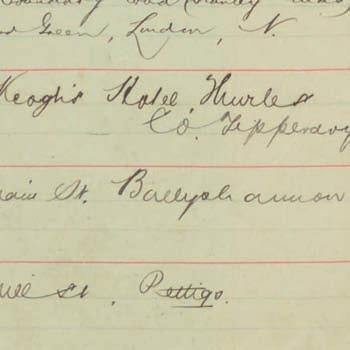 Green, London, N.
Keogh's Hotel, Thurles
Co. Tipperary
Main St. Ballyshannon
St. Pettigo.